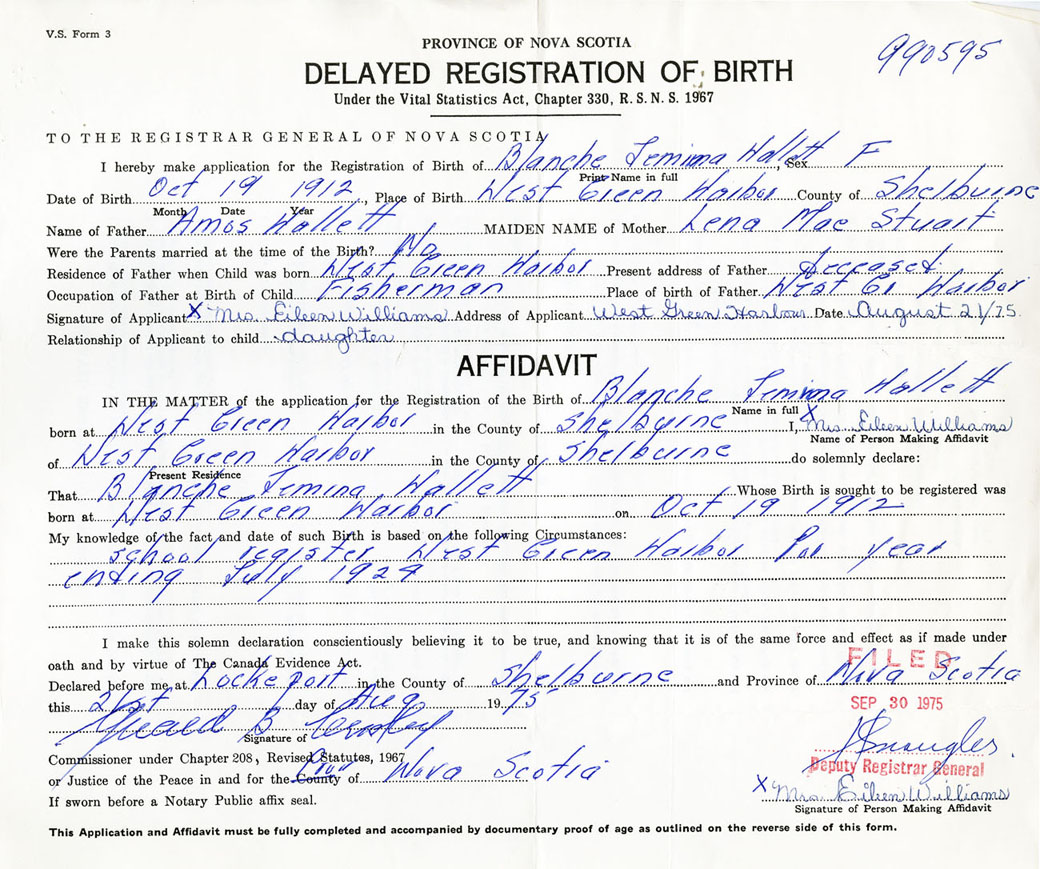 V.S. Form 3
PROVINCE OF NOVA SCOTIA
990595
DELAYED REGISTRATION OF BIRTH
Under the Vital Statistics Act, Chapter 330, R.S.N.S. 1967
TO THE REGISTRAR GENERAL OF NOVA SCOTIA
I hereby make application for the Registration of Birth of Blanche Jemima Hallett, Sex F
Print Name in full
Date of Birth Oct 19 1912, Place of Birth West Green Harbor County of Shelburne
Month Date Year
Name of Father Amos Hallett MAIDEN NAME of Mother Lena Mae Stuart
Were the Parents married at the time of the Birth? No
Residence of Father when Child was born West Green Harbor Present address of Father deceased
Occupation of Father at Birth of Child Fisherman Place of birth of Father West Gr Harbor
Signature of Applicant X Mrs. Eileen Williams Address of Applicant West Green Harbour Date August 21/75.
Relationship of Applicant to child daughter
AFFIDAVIT
IN THE MATTER of the application for the Registration of the Birth of Blanche Jemima Hallett
Name in full
born at West Green Harbor in the County of Shelburne I, X Mrs. Eileen Williams
Name of Person Making Affidavit
of West Green Harbor in the County of Shelburne do solemnly declare:
Present Residence
That Blanche Jemina Hallett Whose Birth is sought to be registered was
born at West Green Harbor on Oct 19 1912
My knowledge of the fact and date of such Birth is based on the following Circumstances:
school register West Green Harbor for year
ending July 1924
I make this solemn declaration conscientiously believing it to be true, and knowing that it is of the same force and effect as if made under
oath and by virtue of The Canada Evidence Act.
FILED
Declared before me at Lockeport in the County of Shelburne and Province of Nova Scotia
this 21st day of Aug 1975
SEP 30 1975
B
Signature of
Commissioner under Chapter 208, Revised Statutes, 1967
or Justice of the Peace in and for the County of Nova Scotia
Deputy Registrar General
X Mrs. Eileen Williams
If sworn before a Notary Public affix seal.
Signature of Person Making Affidavit
This Application and Affidavit must be fully completed and accompanied by documentary proof of age as outlined on the reverse side of this form.